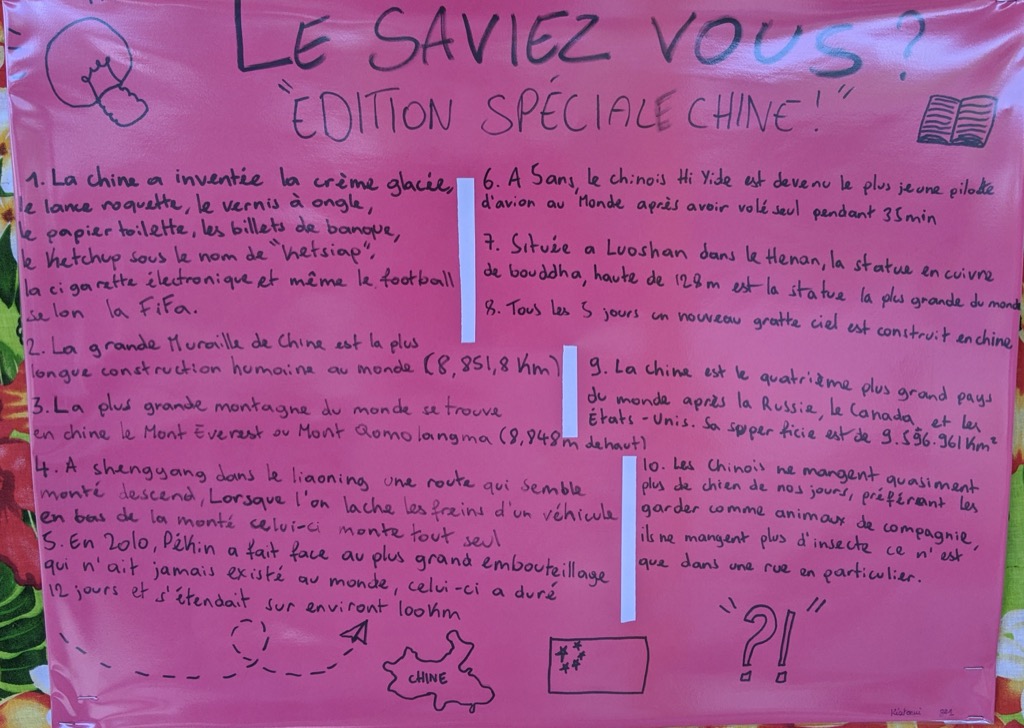 LE SAVIEZ VOUS ?
"EDITION SPÉCIALE CHINE !"
1. La chine a inventée la crème glacée,
le lance roquette, le vernis à ongle,
le papier toilette, les billets de banque,
le Ketchup sous le nom de "Ketsiap",
la cigarette électronique et même le football
selon la FiFa.
2. La grande Muraille de Chine est la plus
longue construction humaine au monde (8,851,8 Km)
3. La plus grande montagne du monde se trouve
en chine le Mont Everest ou Mont Qomolangma (8,848m dehaut)
4. A shengyang dans le liaoning une route qui semble
monté descend, Lorsque l'on lache les freins d'un véhicule
en bas de la monté celui-ci monte tout seul
5. En 2010, Pékin a fait face au plus grand embouteillage
qui n'ait jamais existé au monde, celui-ci a duré
12 jours et s'étendait sur environt 100Km
6. A 5ans, le chinois Hi Yide est devenu le plus jeune pilote
d'avion au Monde après avoir volé seul pendant 35min
7. Située a Luoshan dans le Henan, la statue en cuivre
de bouddha, haute de 128m est la statue la plus grande du monde
8. Tous les 5 jours un nouveau gratte ciel est construit en chine
9. La chine est le quatrième plus grand pays
du monde après la Russie, le Canada et les
États-Unis. Sa superficie est de 9.596.961Km²
10. Les Chinois ne mangent quasiment
plus de chien de nos jours, préférant les
garder comme animaux de compagnie,
ils ne mangent plus d'insecte ce n'est
que dans une rue en particulier.
CHINE
"?!"